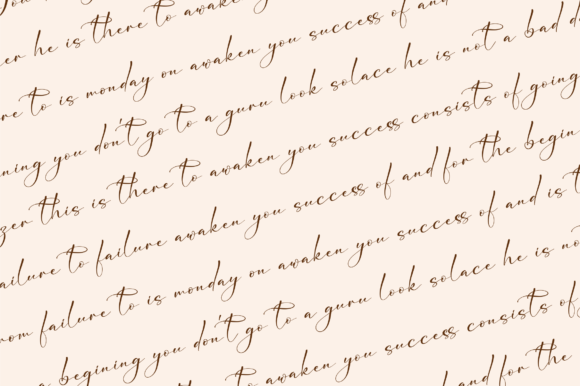 he is there to awaken
to is monday on awaken you success of and
ning you don't go to a guru look solace he is not a bad d
this is there to awaken you success consists of going
ailure to failure awaken you success of and for the begin
rom failure to is monday on awaken you success of and is t
a begining you don't go to a guru look solace he is no
to awaken you success consists of
and for the